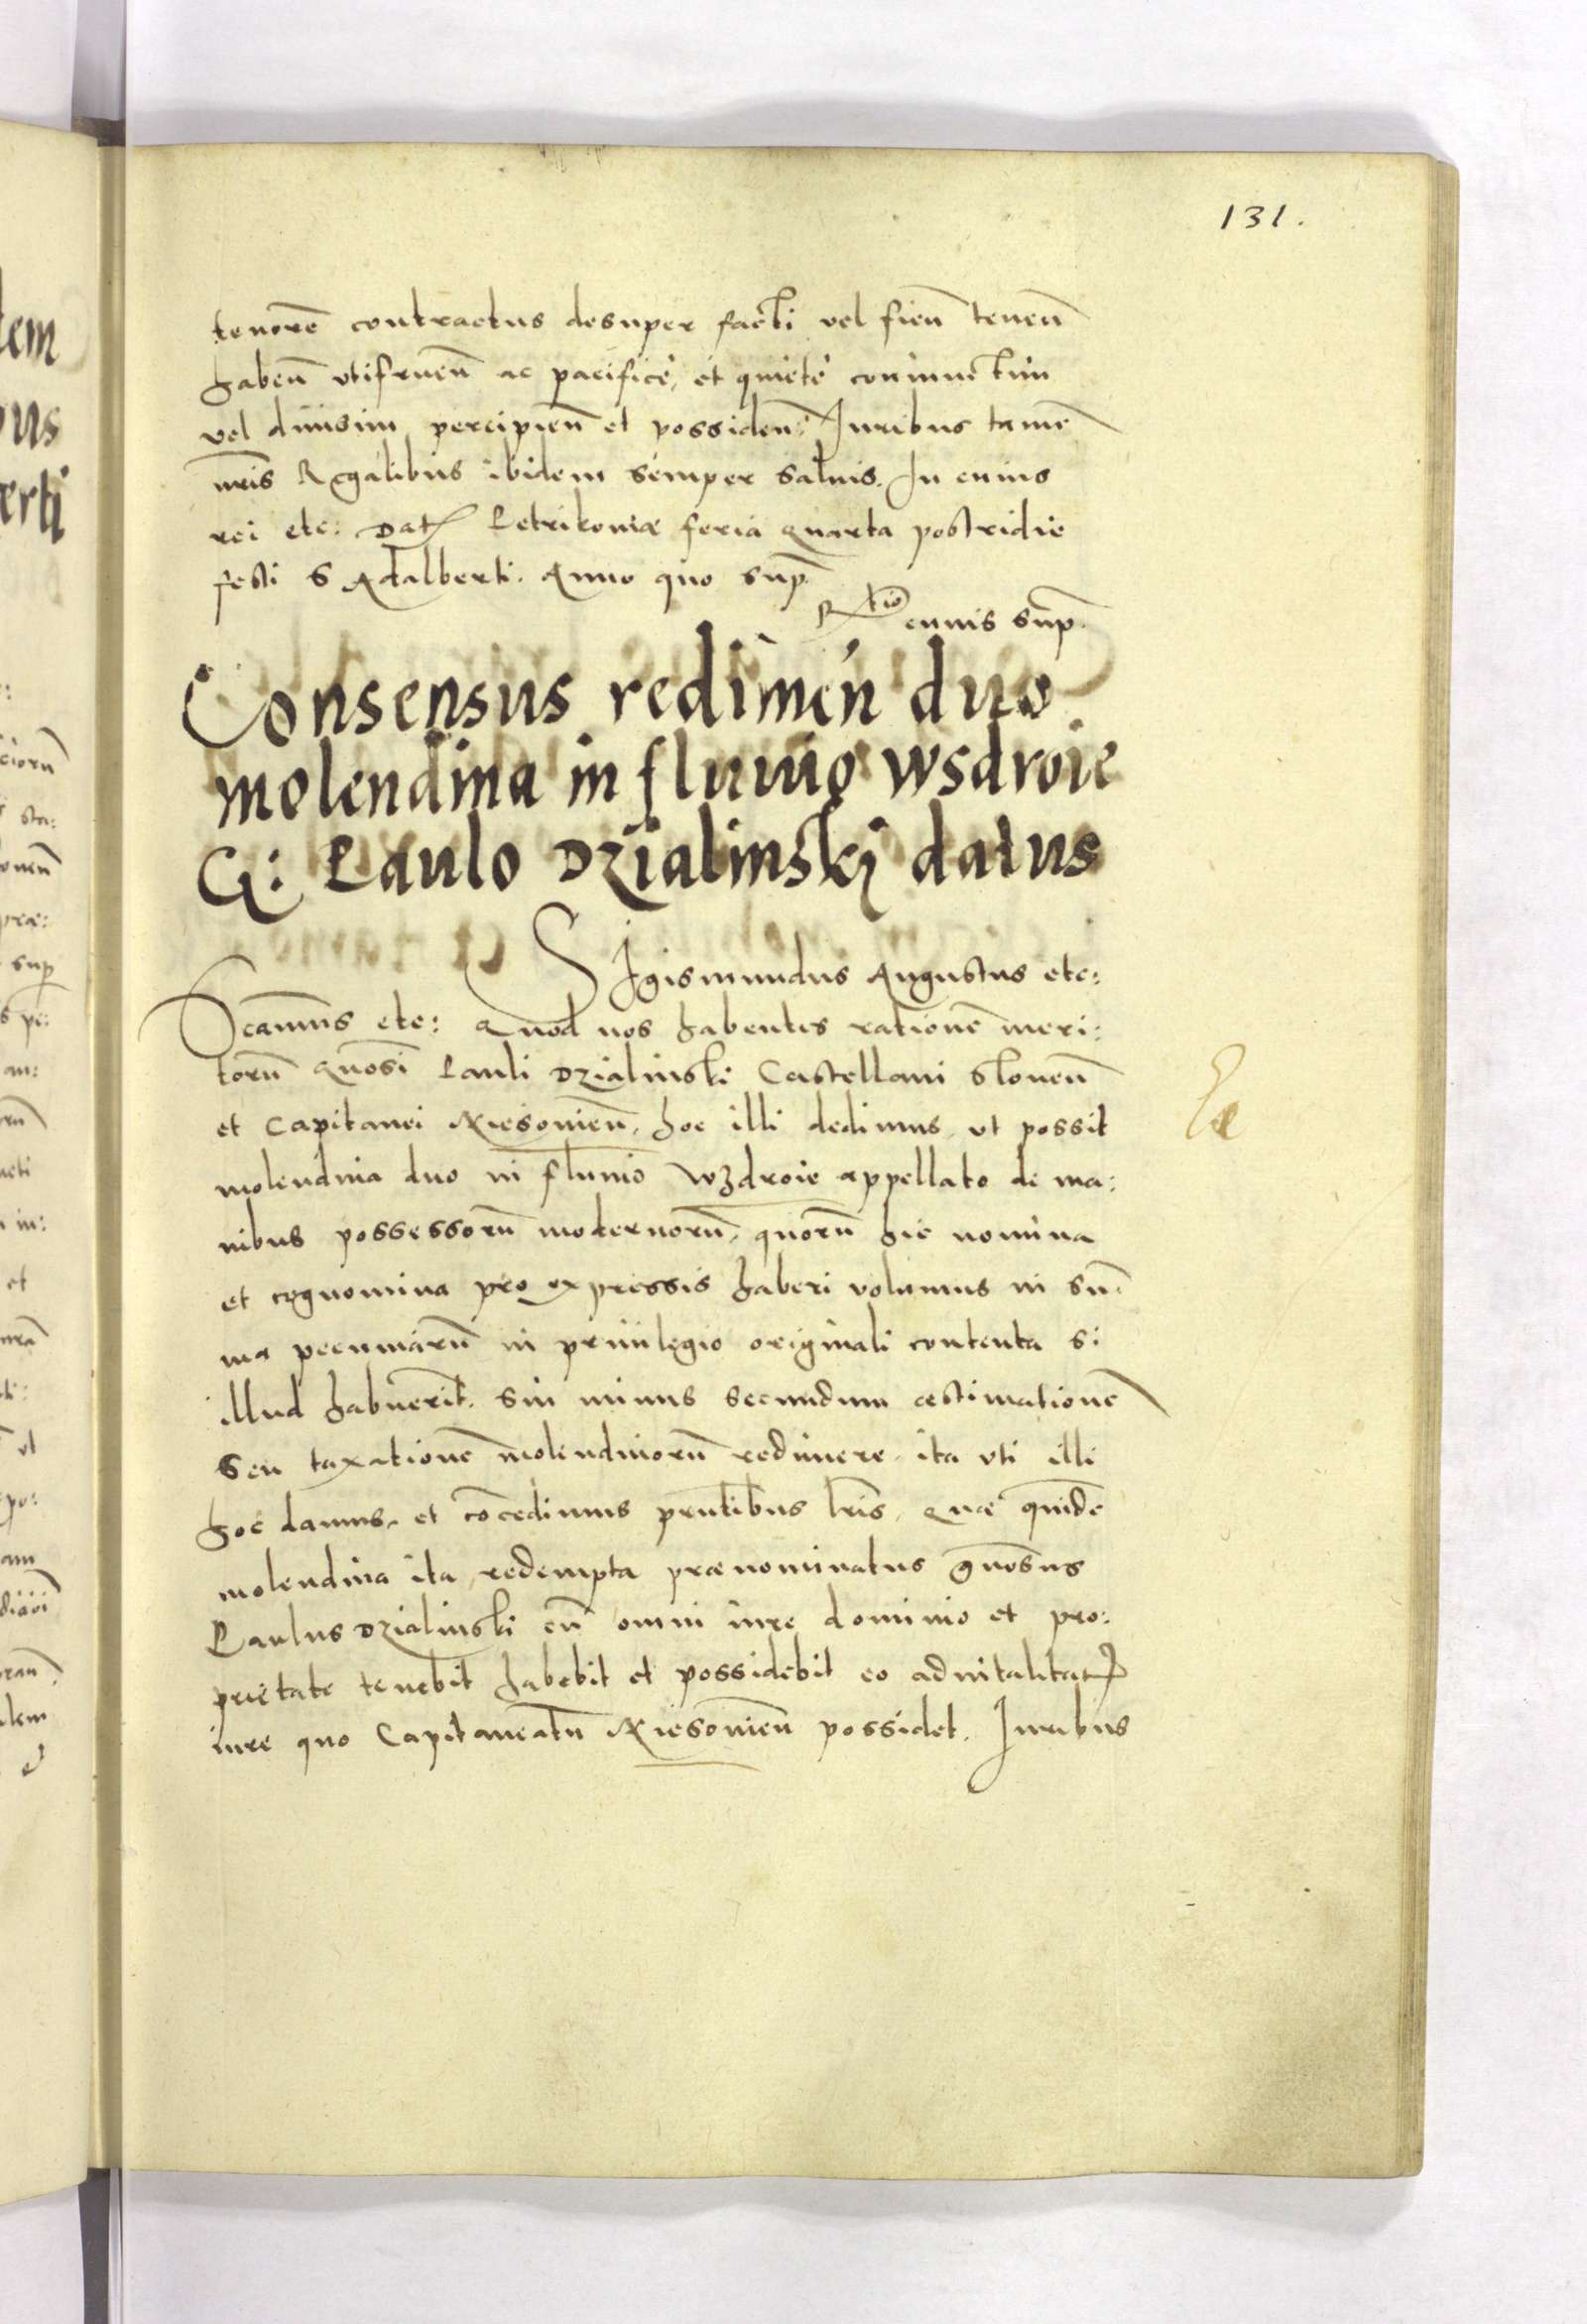 131.
tenorē contractus desuper facti vel fień teneń
habeń vtifrueń ac pacificè, et quietè coniunctim
vel diuisim percipień et possideń: Iuribus tamē
nr̄is Regalibus ibidem semper saluis. In cuius
rei etc: Dat Petrikoviæ feria quarta postridie
festi S Adalberti. Anno quo sup.
Rtio cuius sup.
Consensus redimeń duo
molendina in fluuio wsdroie
G: Paulo Dzialinskj datus
SIgismundus Augustus etc:
Significamus etc: Quod nos habentes rationē meri:
torū Gnosi Pauli Dzialinski Castellani Słoneń
et Capitanei Niesovień, hoc illi dedimus, ut possit
molendina duo in fluuio Wzdroie appellato de ma:
nibus possessorū modernorū, quorū hic nomina
et cognomina pro expressis haberi volumus in sū:
ma pecuniarū in priuilegio originali contenta si
illud habuerīt. Sin minus secundum æstimationē
seu taxationē molendinorū redimere, ita vti illi
hoc damus, et cōcedimus pn̄tibus lr̄is, Quæ quidē
molendina ita redempta prænominatus Gnosus
Paulus Dzialinski cū omni iure dominio et pro:
prietate tenebit habebit et possidebit eo aduitalitat
iure quo Capitaneatū Niesovień possidet. Iuribus